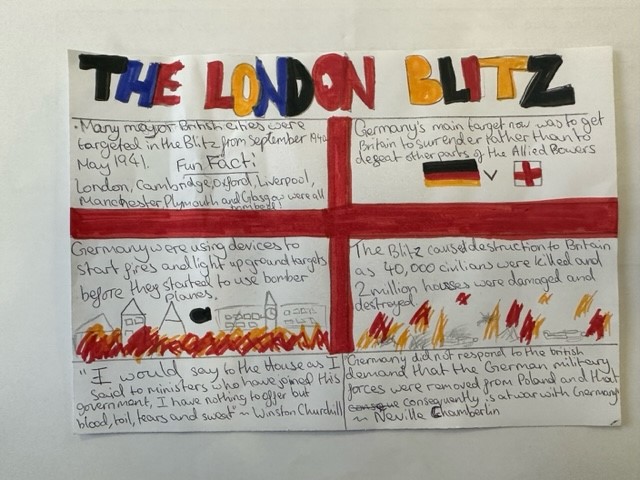 THE LONDON BLITZ
• Many mayor British cities were
targeted in the Blitz from September 1940
May 1941.
Fun Fact:
London, Cambridge, Oxford, Liverpool,
Manchester Plymouth and Glasgow were all
bombed!
Germany's main target now was to get
Britain to surrender rather than to
defeat other parts of the Allied Powers
V
Germany were using devices to
start fires and light up ground targets
before they started to use bomber
planes.
The Blitz caused destruction to Britain
as 40,000 civilians were killed and
2 million houses were damaged and
destroyed.
"I would say to the House as I
said to ministers who have joined this
government, I have nothing to offer but
blood, toil, tears and sweat" ~ Winston Churchill
Germany did not respond to the british
demand that the German military
forces were removed from Poland and that
consequently is at war with Germany"
~ Neville Chamberlin